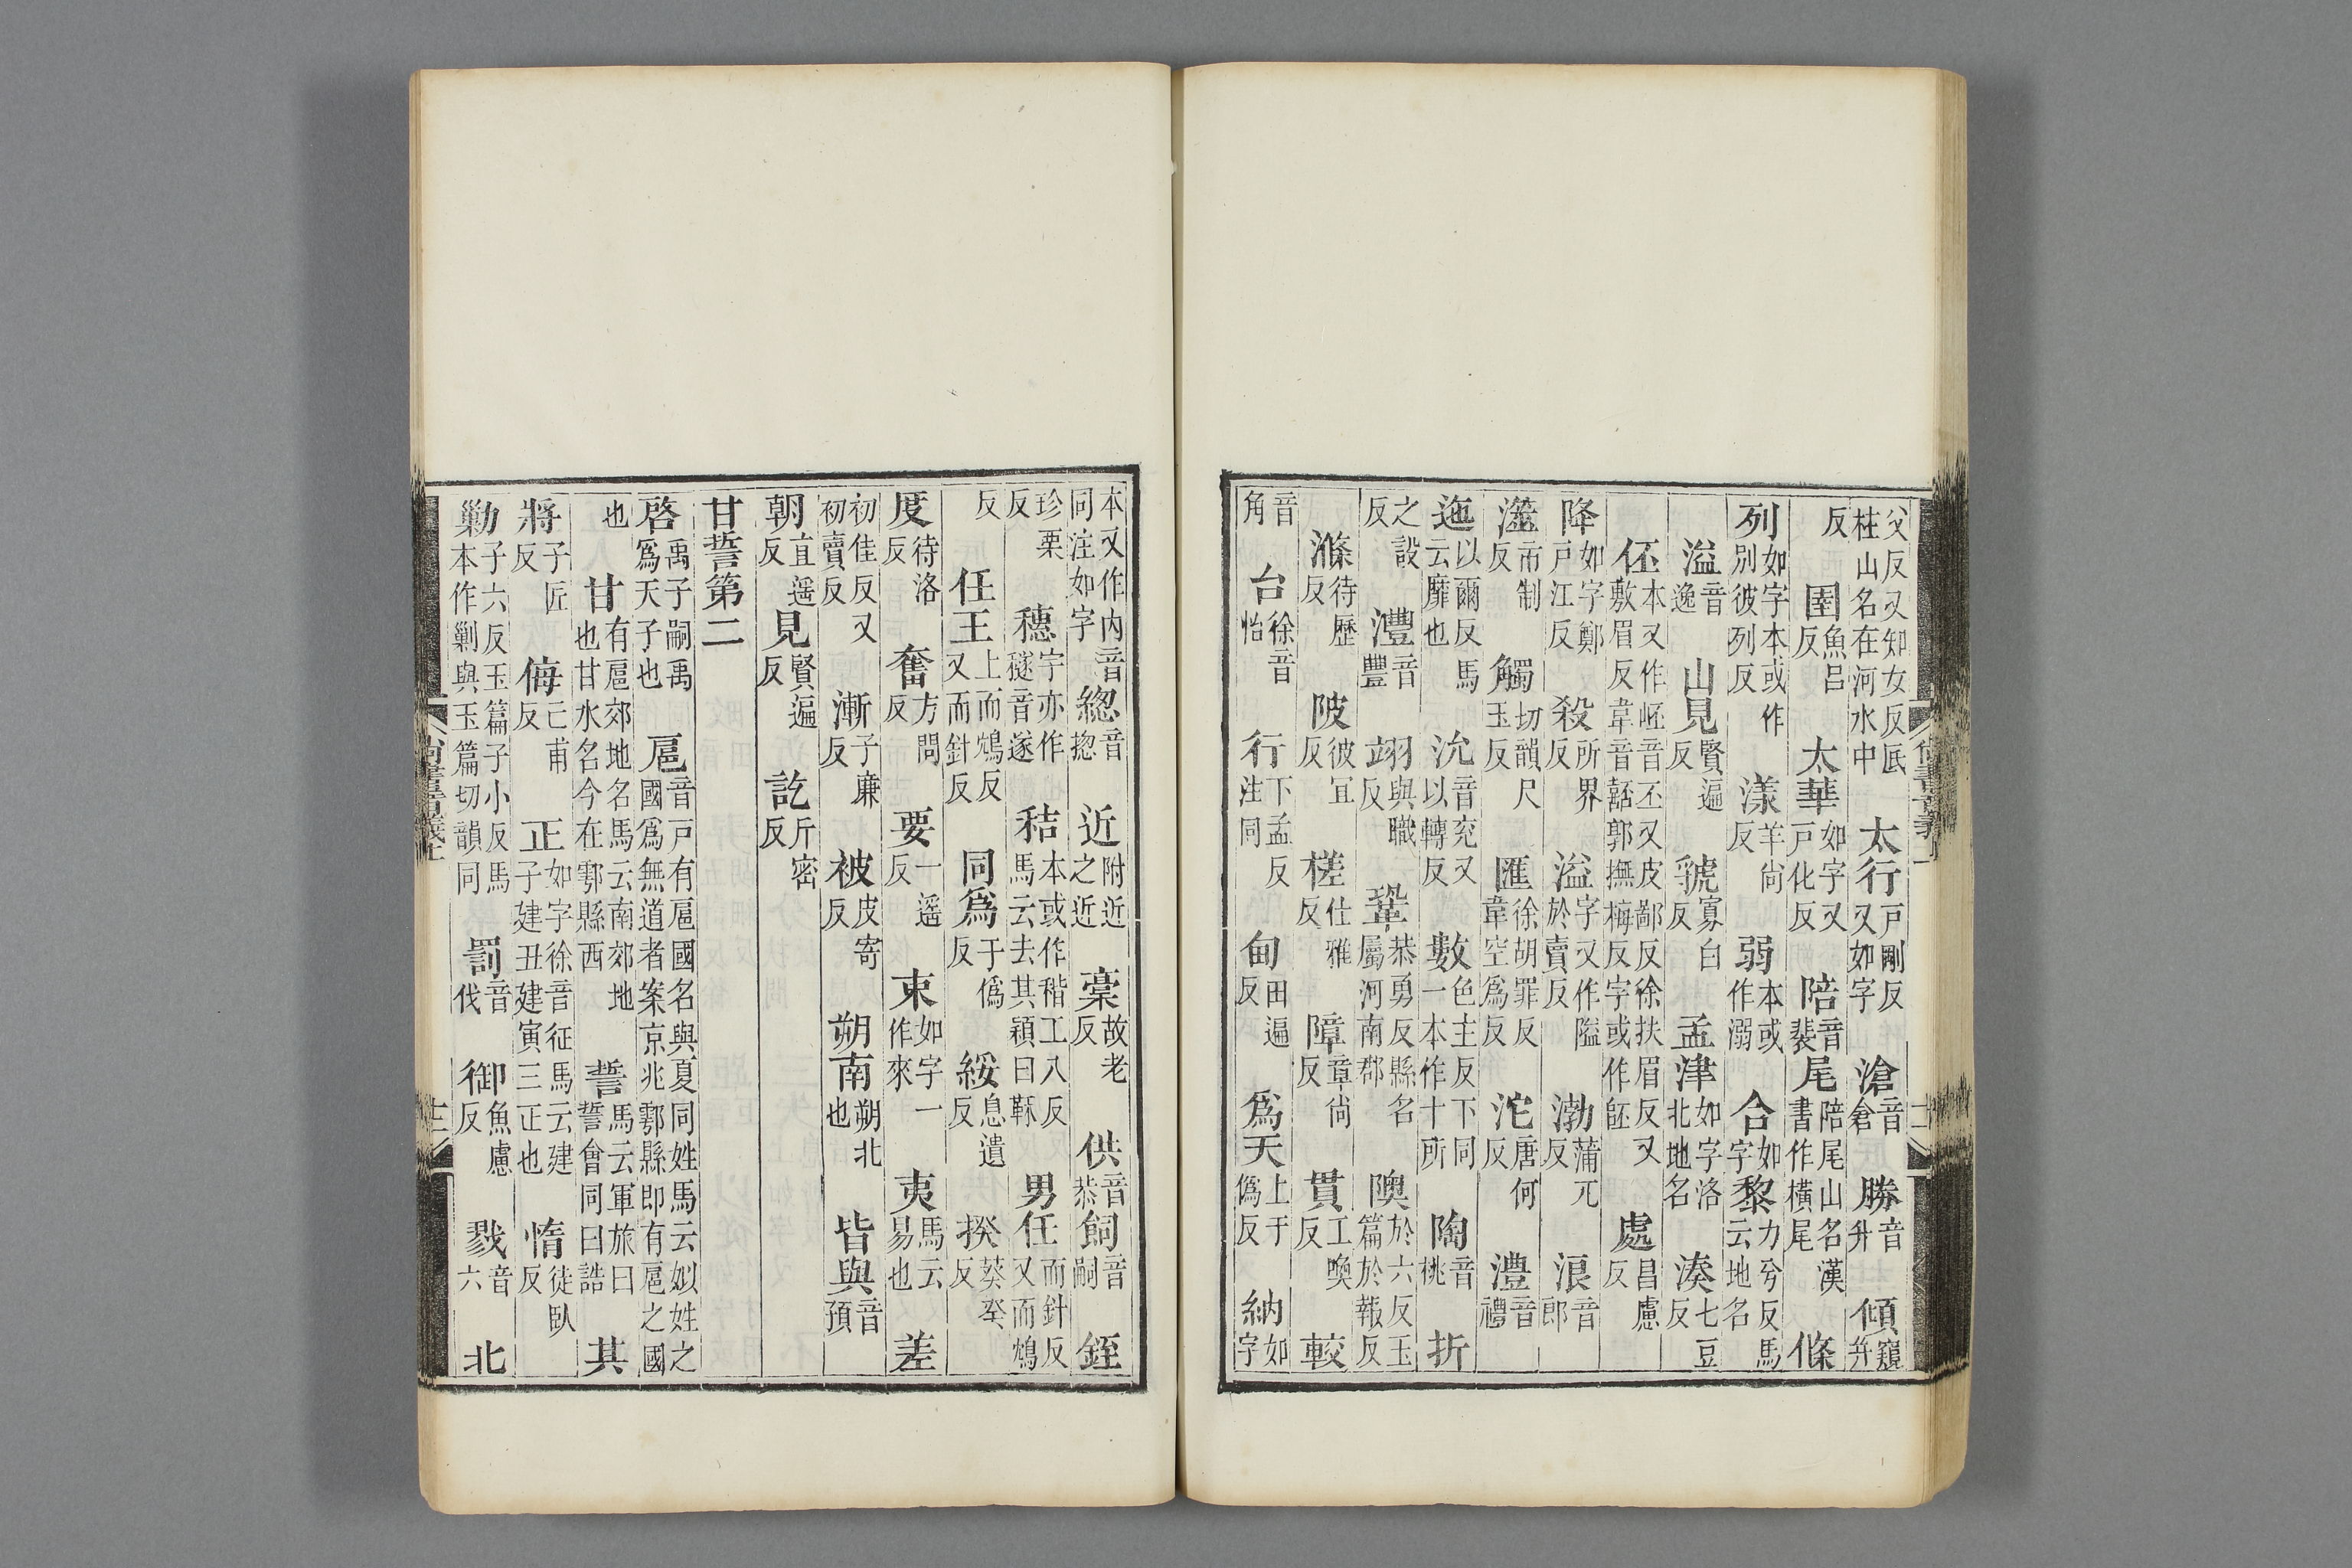 父反又知女反厎柱山名在河水中　太行戸剛反又如字　滄音倉　勝音升　傾窺幷
反　圉魚呂反　太華如字又戸化反　陪音裴尾陪尾山名漢書作橫尾　條
列如字本或作別彼列反　漾羊尙反　弱本或作溺　合如字黎力兮反馬云地名
溢音逸　山見賢遍反　虢寡白反　孟津如字洛北地名　湊七豆反
伾本又作岯音丕又皮鄙反徐扶眉反又敷眉反韋音嚭郭撫梅反字或作𨸝　處昌慮反
降如字鄭戸江反　殺所界反　溢字又作隘於賣反　渤蒲兀反　浪音郎
澨市制反　觸切韻尺玉反　匯徐胡罪反韋空爲反　沱唐何反　澧音禮
迤以爾反馬云靡也　沇音兖又以轉反　數色主反下同一本作十所　陶音桃　折
之設反　灃音豐　翊與職反　鞏恭勇反縣名屬河南郡　隩於六反玉篇於報反
滌待歷反　陂彼宜反　槎仕雅反　障章尙反　貫工喚反　較
音角　台徐音怡　行下孟反注同　甸田遍反　爲天上于僞反　納如字
本又作內音同注如字　總音揔　近附近之近　稾故老反　供音恭飼音嗣　銍
珍栗反　穗字亦作穟音遂　秸本或作稭工八反馬云去其穎曰鞂　男任而針反又而鴆
反　任王上而鴆反又而針反　同爲于僞反　綏息遺反　揆葵癸反
度待洛反　奮方問反　要一遥反　束如字一作來　夷馬云易也　差
初佳反又初賣反　漸子廉反　被皮寄反　朔南朔北也　皆與音預
朝直遥反　見賢遍反　訖斤密反
甘誓第二
啓禹子嗣禹爲天子也　扈音戸有扈國名與夏同姓馬云姒姓之國爲無道者案京兆鄠縣即有扈之國
也　甘有扈郊地名馬云南郊地也甘水名今在鄠縣西　誓馬云軍旅曰誓會同曰誥　其
將子匠反　侮亡甫反　正如字徐音征馬云建子建丑建寅三正也　惰徒臥反
勦子六反玉篇子小反馬本作剿與玉篇切韻同　罰音伐　御魚慮反　戮音六　北